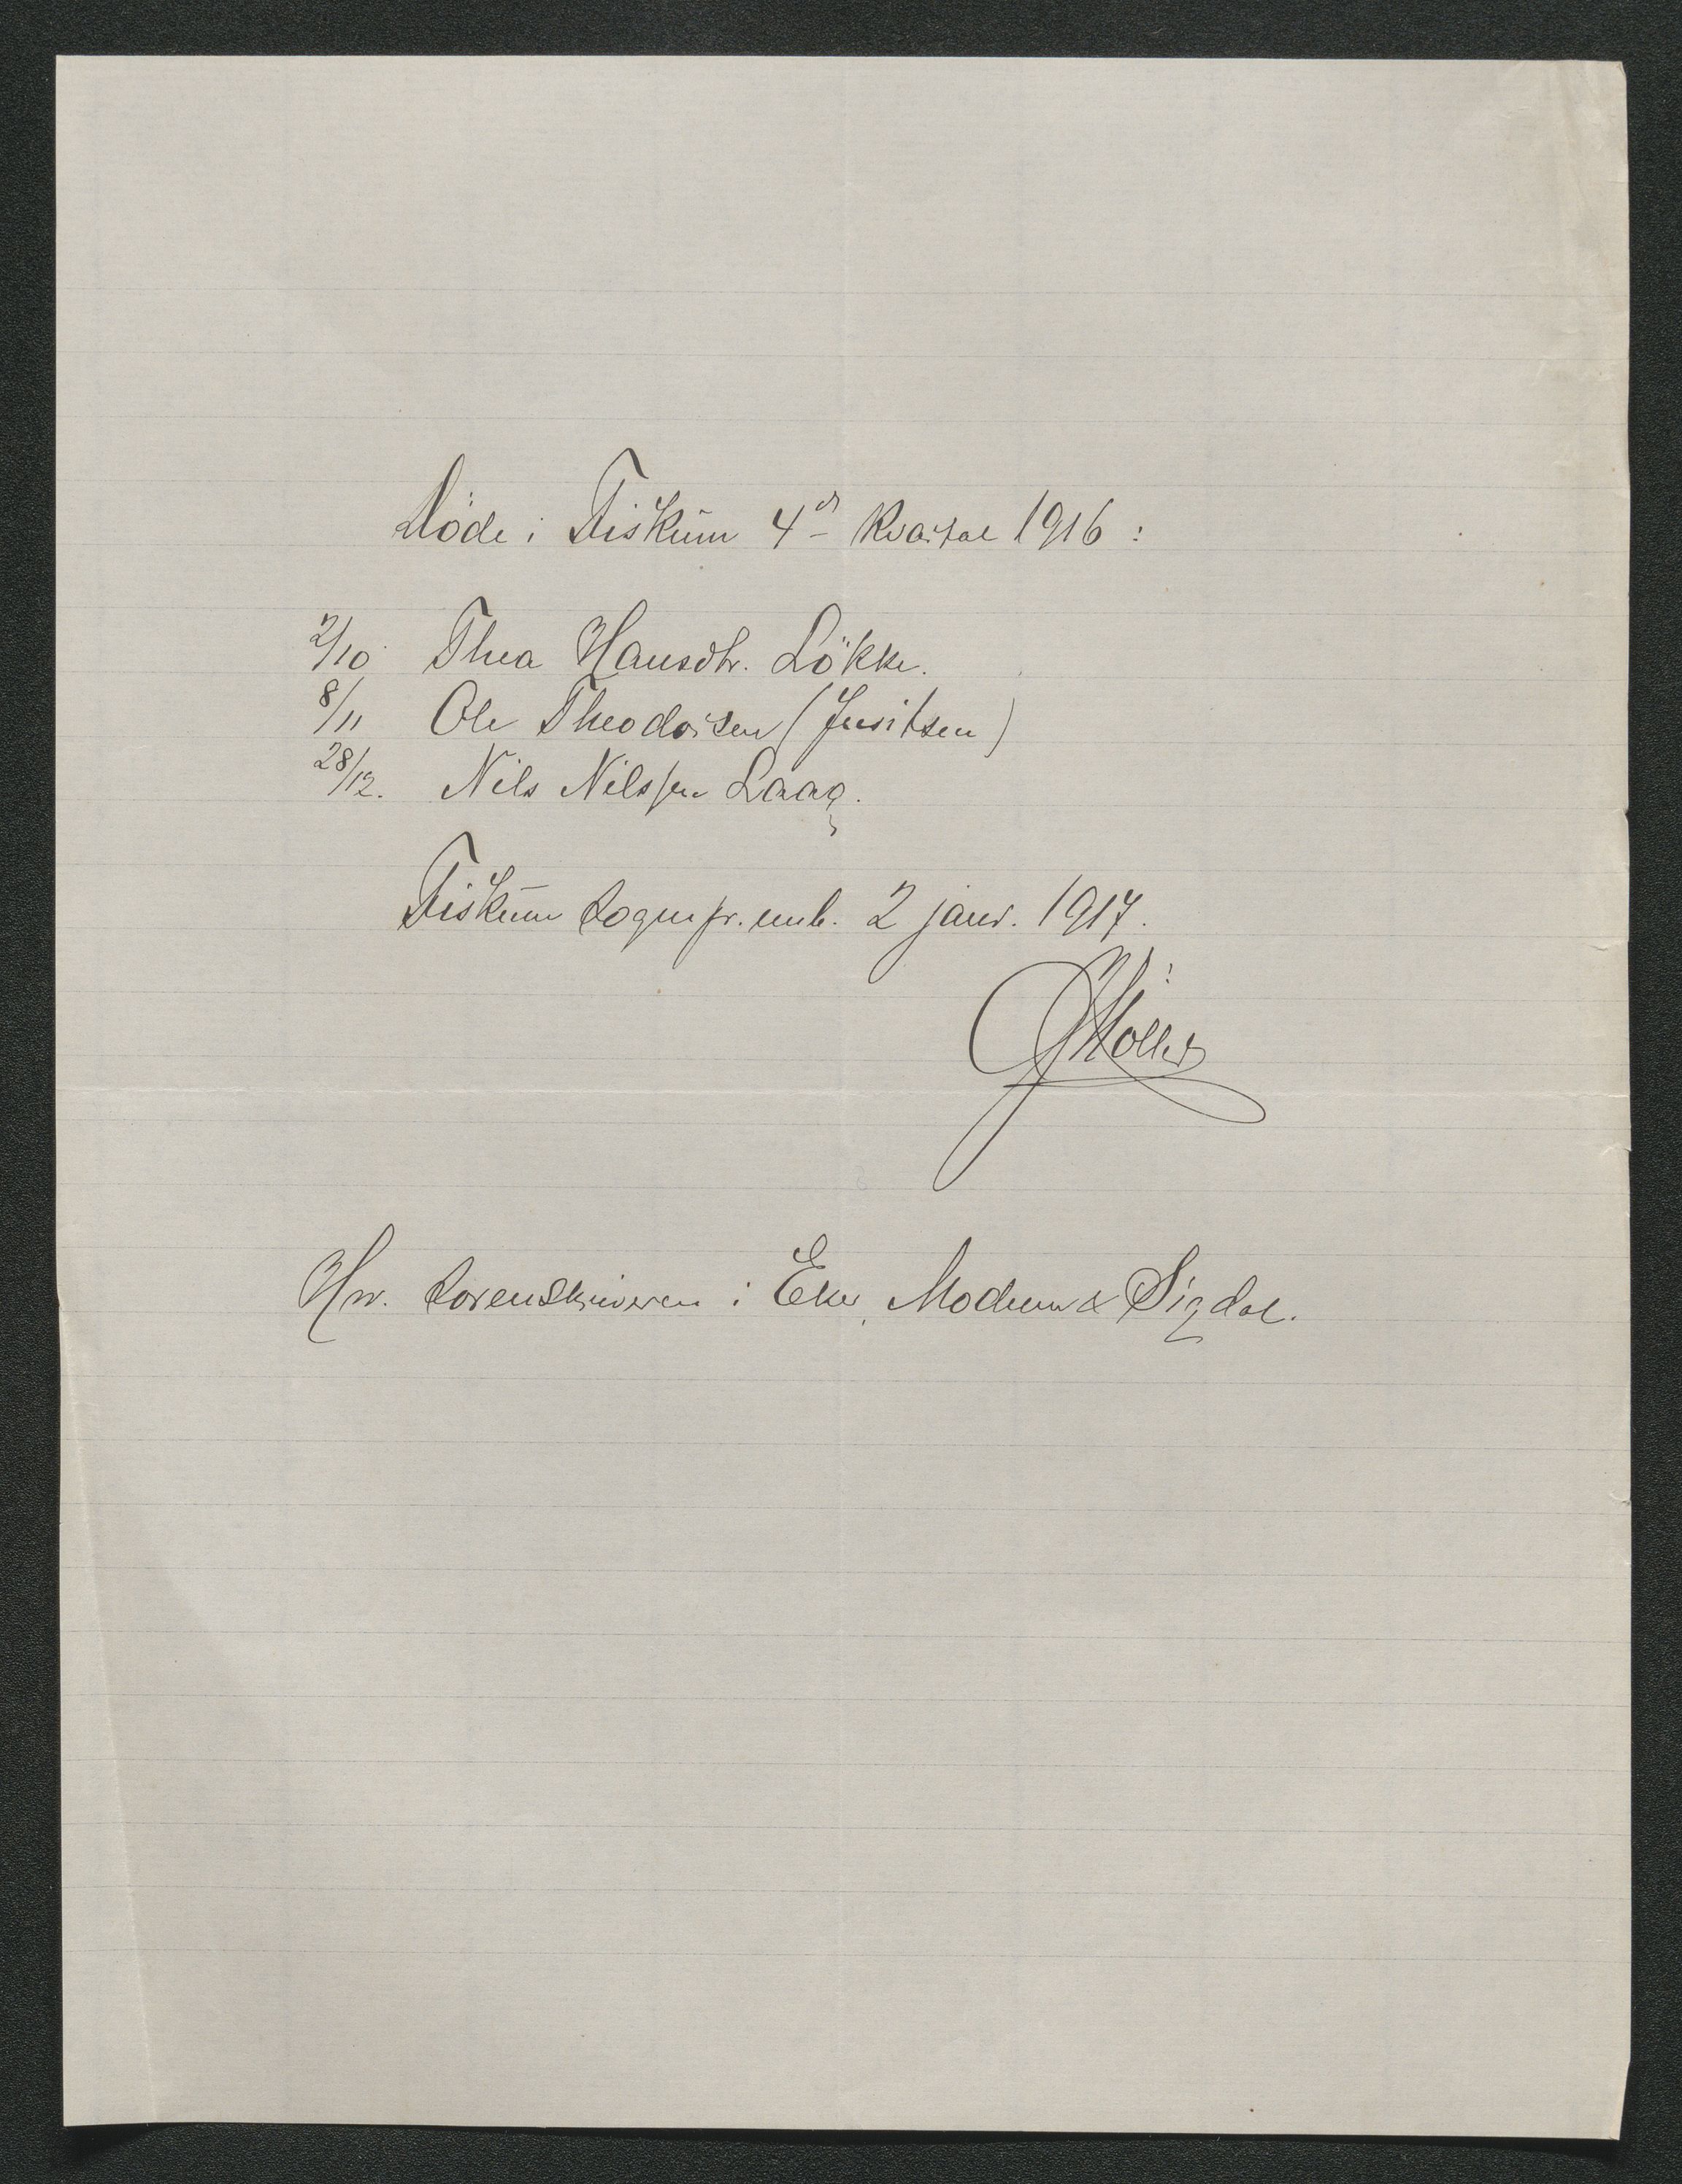 Döde i Fiskum 4de Kvartal 1916 :
2/10 Thea Hansdtr. Lökke.
8/11 Ole Theodorsen ( )
28/12. Nils Nilssen Laag.
Fiskum Sognepr. emb. 2 janr. 1917.
Möller
Hr. Sorenskriveren i Eker, Modum & Sigdal.